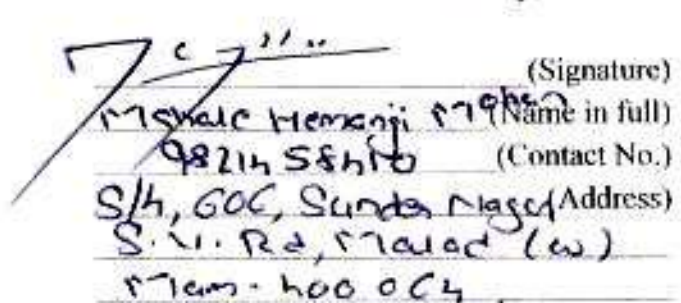 (Signature)
Mahale Hemangi Mohan (Name in full)
98214 58410 (Contact No.)
S/4, GOC, Sunder Nagar (Address)
S.V. Rd, Malad (W)
Mum - 400 064